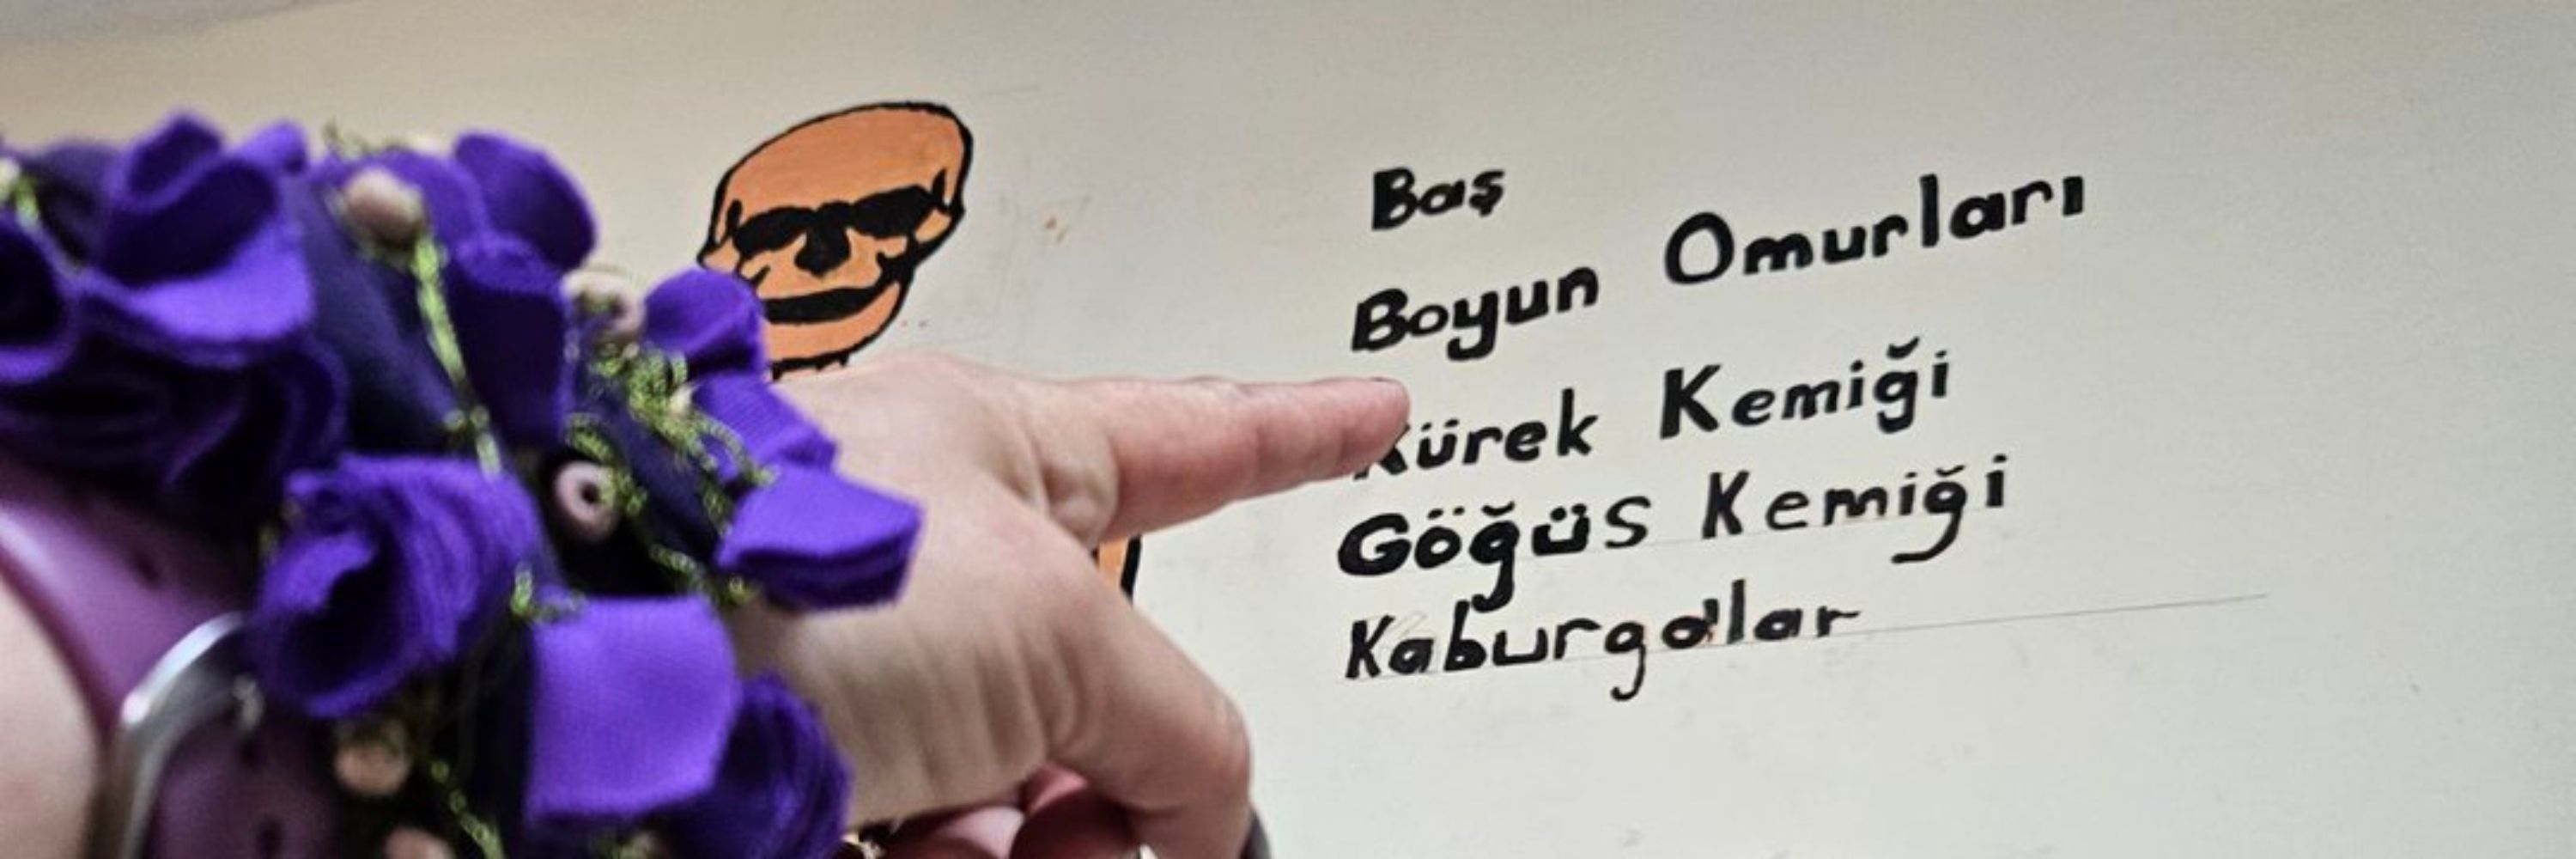 Baş
Boyun Omurları
Kürek Kemiği
Göğüs Kemiği
Kaburgalar